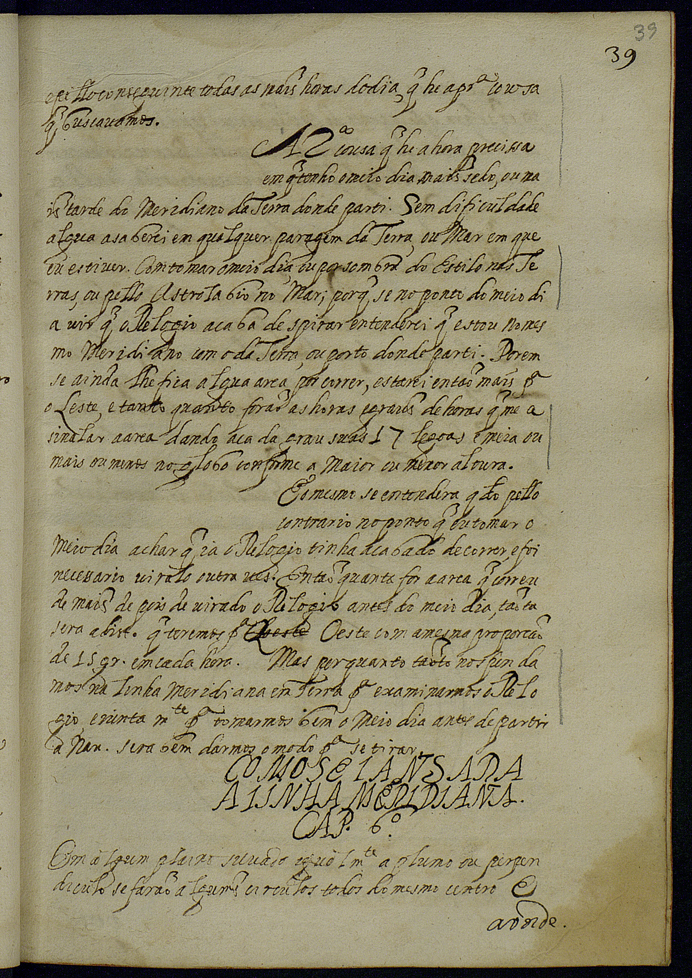 39
39
e pello conseguinte todas as mais horas do dia, q̃ he a pr.ª cousa
q̃ buscavamos.
A 2ª cousa q̃ he a hora precissa
em q̃ tenho o meio dia mais sedo, ou ma
is tarde do Meridiano da Terra donde parti. Sem dificuldade
algũa a saberei em qualquer paragem da Terra, ou Mar em que
eu estiver. Com tomar o meio dia, ou por sombra do Estilo nas Te
rras, ou pello Astrolabio no Mar; porq̃ se no ponto do meio di
a vir q̃ o Relogio acaba de spirar entenderei q̃ estou no mes
mo Meridiano com o da Terra, ou porto donde parti. Porem
se ainda lhe fica algũa area por correr, estarei então mais p.ª
o Leste, e tanto quanto forão as horas, e graus de horas q̃ me a
sinalar a area dando a cada grau suas 17 legoas e meia ou
mais ou menos no globo conforme a Maior ou menor altura.
O mesmo se entendera q̃do pello
contrario no ponto q̃ eu tomar o
Meio dia achar q̃ ia o Relogio tinha acabado de correr, e foi
necessario viralo outra ves. Então quanta for a area q̃ correu
de mais depois de virado o Relogio antes do meio dia, tanta
sera a dist.ª q̃ teremos p.ª Oeste com a mesma proporção
de 15 gr. em cada hora. Mas porquanto tãoto nos funda
mos na Linha Meridiana em Terra p.ª examinarmos o Relo
gio, e iunta m.te p.ª tomarmos bem o Meio dia antes de partir
a Nau. sera bem darmos o modo p.ª se tirar.
COMO SE LANSADA
A LINHA MERIDIANA.
CAP. 6º.
Em algum plaino equal m.te a plumo ou perpen
diculo se farão algums circulos todos do mesmo centro
aonde.